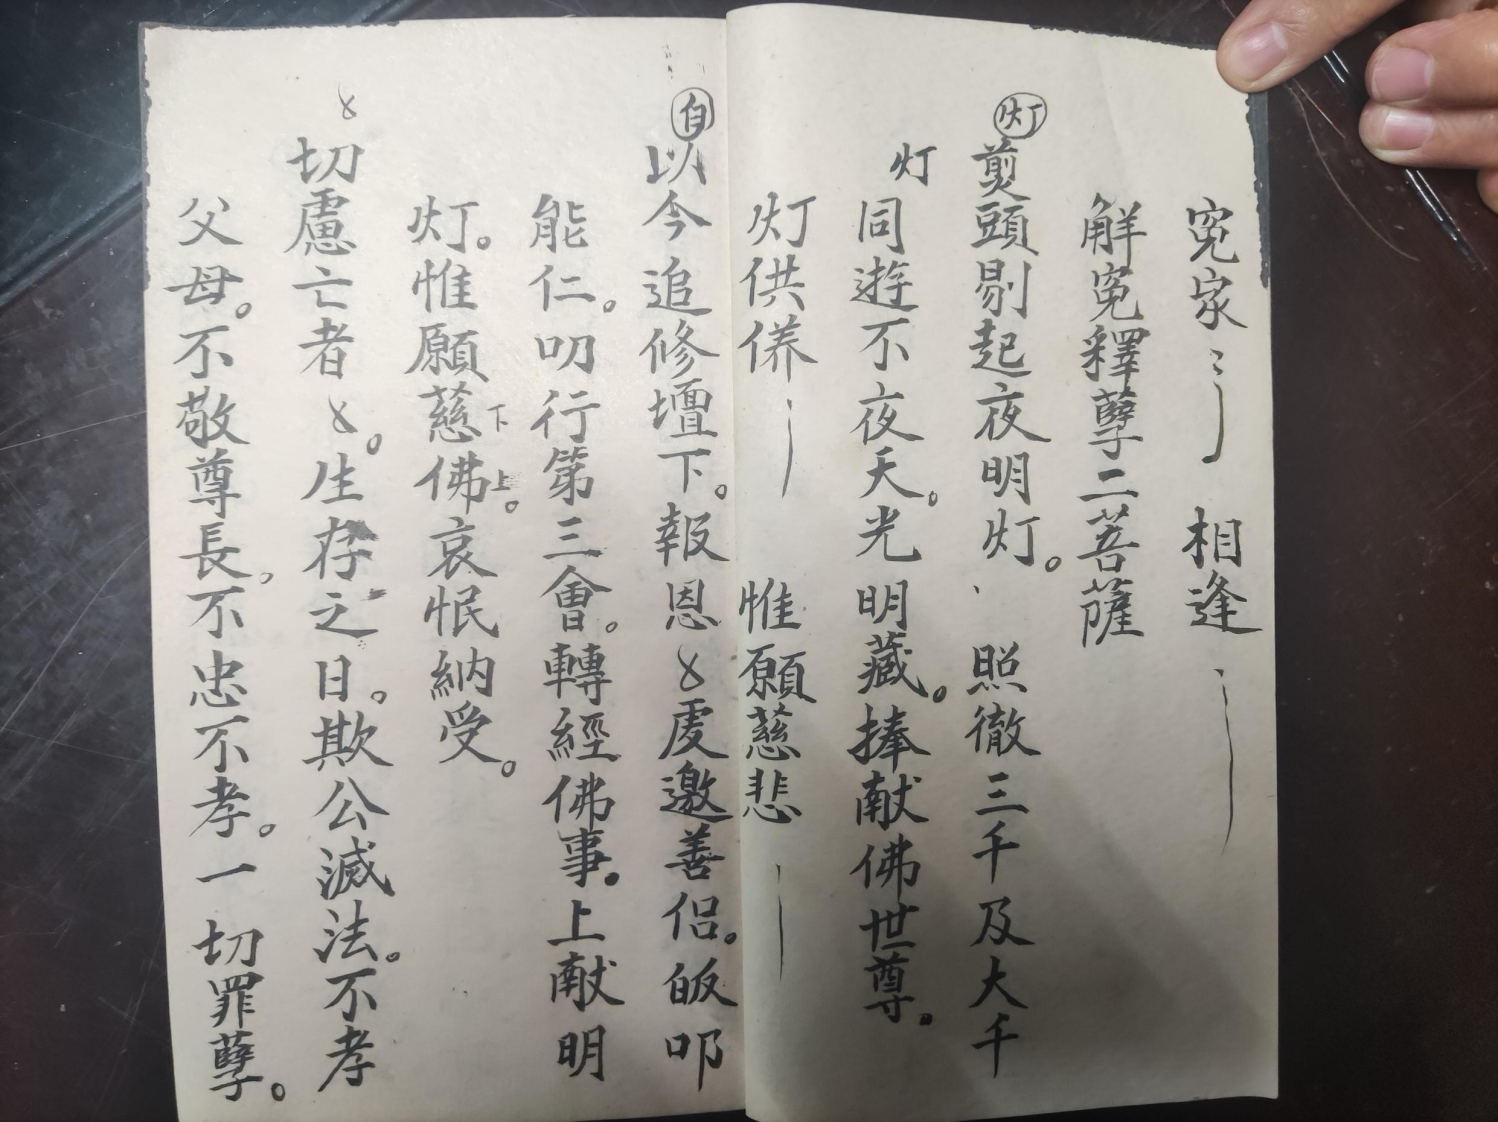 寃家〻 相逢
解寃釋孽二菩薩
灯 剪頭剔起夜明灯。照徹三千及大千
灯 同遊不夜天。光明藏。捧献佛世尊。
灯供侢 惟願慈悲
自 以今追修壇下。報恩〤䖏邀善侣。皈叩
能仁。叨行第三會。轉經佛事。上献明
灯。惟願慈下佛上。哀恨納受。
〤切慮亡者〤。生存之日。欺公滅法。不孝
父母。不敬尊長。不忠不孝。一切罪孽。